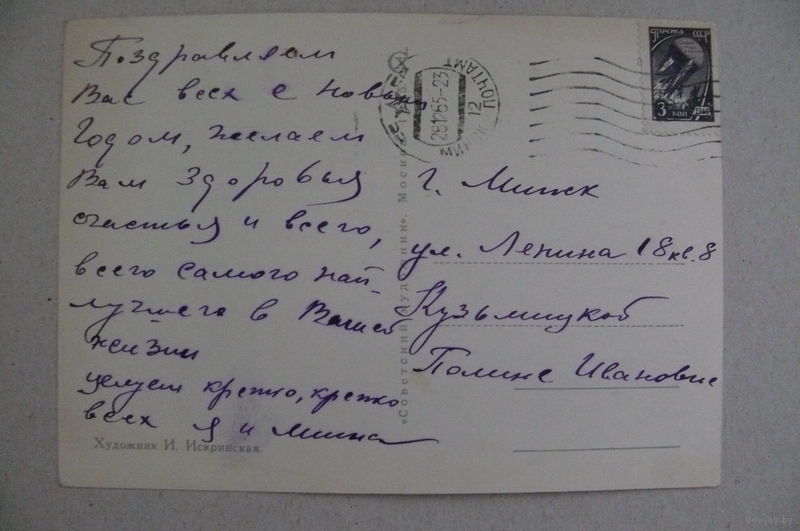 Поздравляем
Вас всех с Новым
Годом, желаем
Вам здоровья
счастья и всего,
всего самого най-
лучшего в Вашей
жизни
целуем крепко, крепко
всех Я и Мина
Художник И. Искринская.
«Советский художник». Москва
ПОЧТАМТ
МИНСК
281265-23
12
ПОЧТА СССР
3 КОП
г. Минск
ул. Ленина 18 кв. 8
Кузьмицкой
Полине Ивановне
www.ay.by